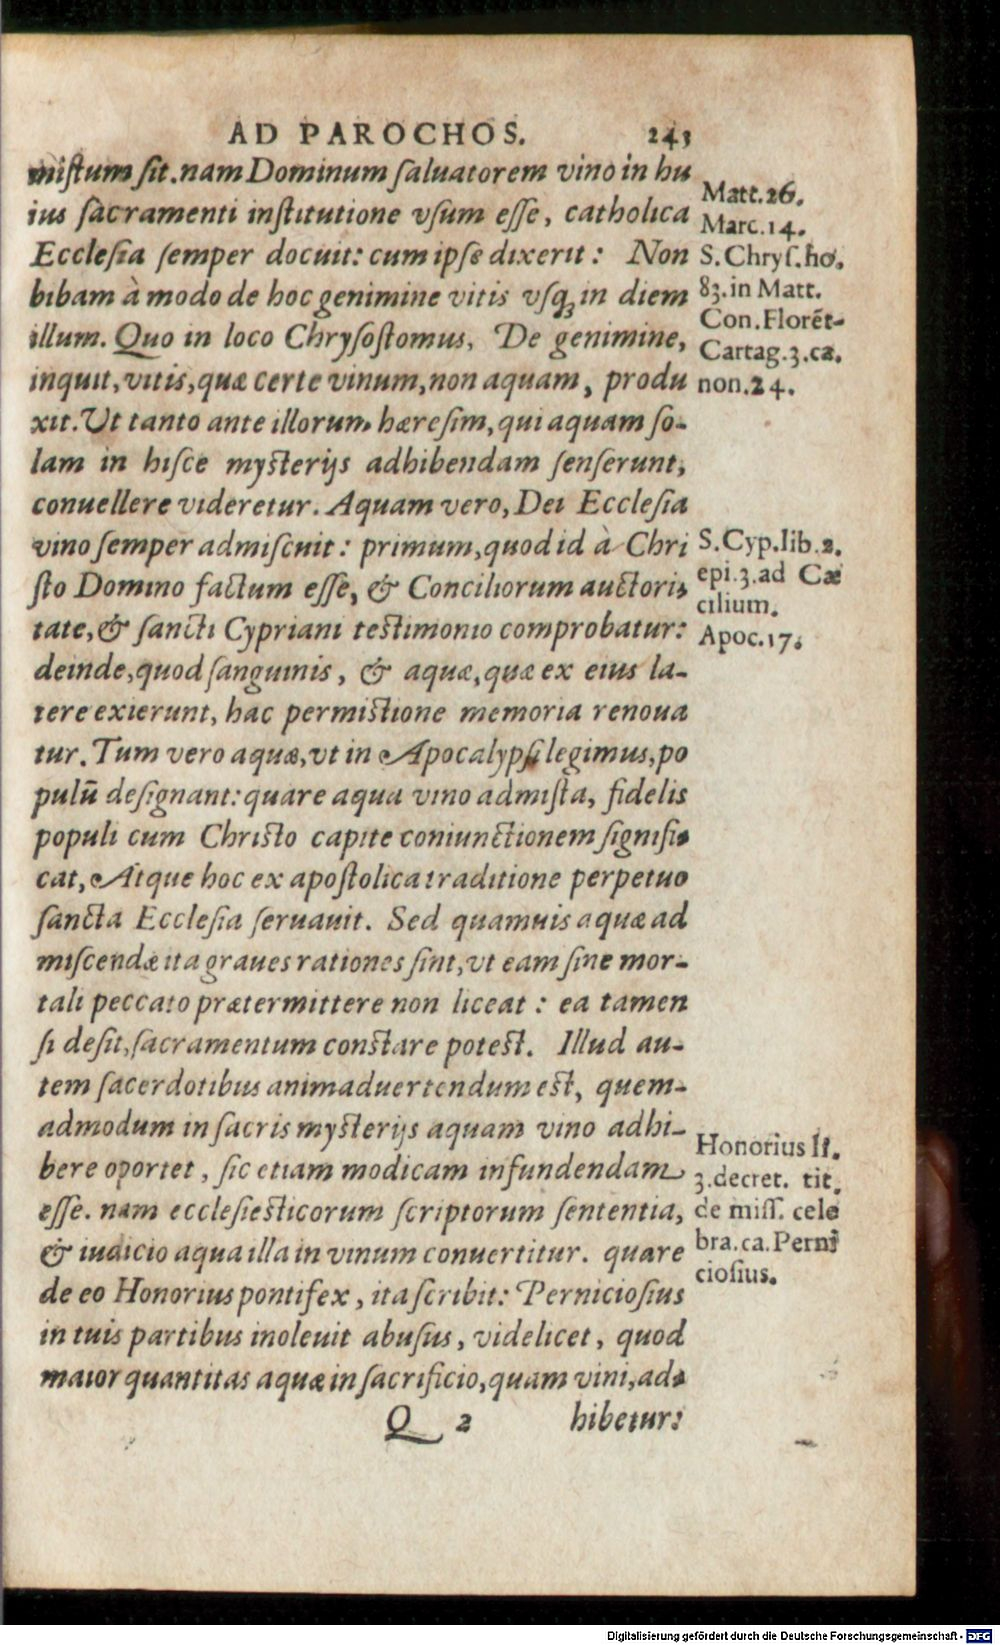 AD PAROCHOS. 243
mistum sit. nam Dominum saluatorem vino in hu
ius sacramenti institutione vsum esse, catholica
Ecclesia semper docuit: cum ipse dixerit: Non
bibam à modo de hoc genimine vitis vsq; in diem
illum. Quo in loco Chrysostomus, De genimine,
inquit, vitis, quæ certe vinum, non aquam, produ
xit. Ut tanto ante illorum hæresim, qui aquam so-
lam in hisce mysterijs adhibendam senserunt,
conuellere videretur. Aquam vero, Dei Ecclesia
vino semper admiscuit: primum, quod id à Chri
sto Domino factum esse, & Conciliorum auctori-
tate, & sancti Cypriani testimonio comprobatur:
deinde, quod sanguinis, & aquæ, quæ ex eius la-
tere exierunt, hac permistione memoria renoua
tur. Tum vero aquæ, vt in Apocalypsi legimus, po
pulū designant: quare aqua vino admista, fidelis
populi cum Christo capite coniunctionem signifi-
cat, Atque hoc ex apostolica traditione perpetuo
sancta Ecclesia seruauit. Sed quamuis aquæ ad
miscendæ ita graues rationes sint, vt eam sine mor-
tali peccato prætermittere non liceat: ea tamen
si desit, sacramentum constare potest. Illud au-
tem sacerdotibus animaduertendum est, quem-
admodum in sacris mysterijs aquam vino adhi-
bere oportet, sic etiam modicam infundendam
esse. nam ecclesiesticorum scriptorum sententia,
& iudicio aqua illa in vinum conuertitur. quare
de eo Honorius pontifex, ita scribit: Perniciosius
in tuis partibus inoleuit abusus, videlicet, quod
maior quantitas aquæ in sacrificio, quam vini, ad-
Q 2 hibetur:
Matt.26.
Marc.14.
S.Chrys.ho.
83.in Matt.
Con.Florēt-
Cartag.3.ca.
non.24.
S.Cyp.lib.2.
epi.3.ad Cæ
cilium.
Apoc.17.
Honorius II.
3.decret. tit.
de miss. cele
bra.ca.Perni
ciosius.
Digitalisierung gefördert durch die Deutsche Forschungsgemeinschaft - DFG